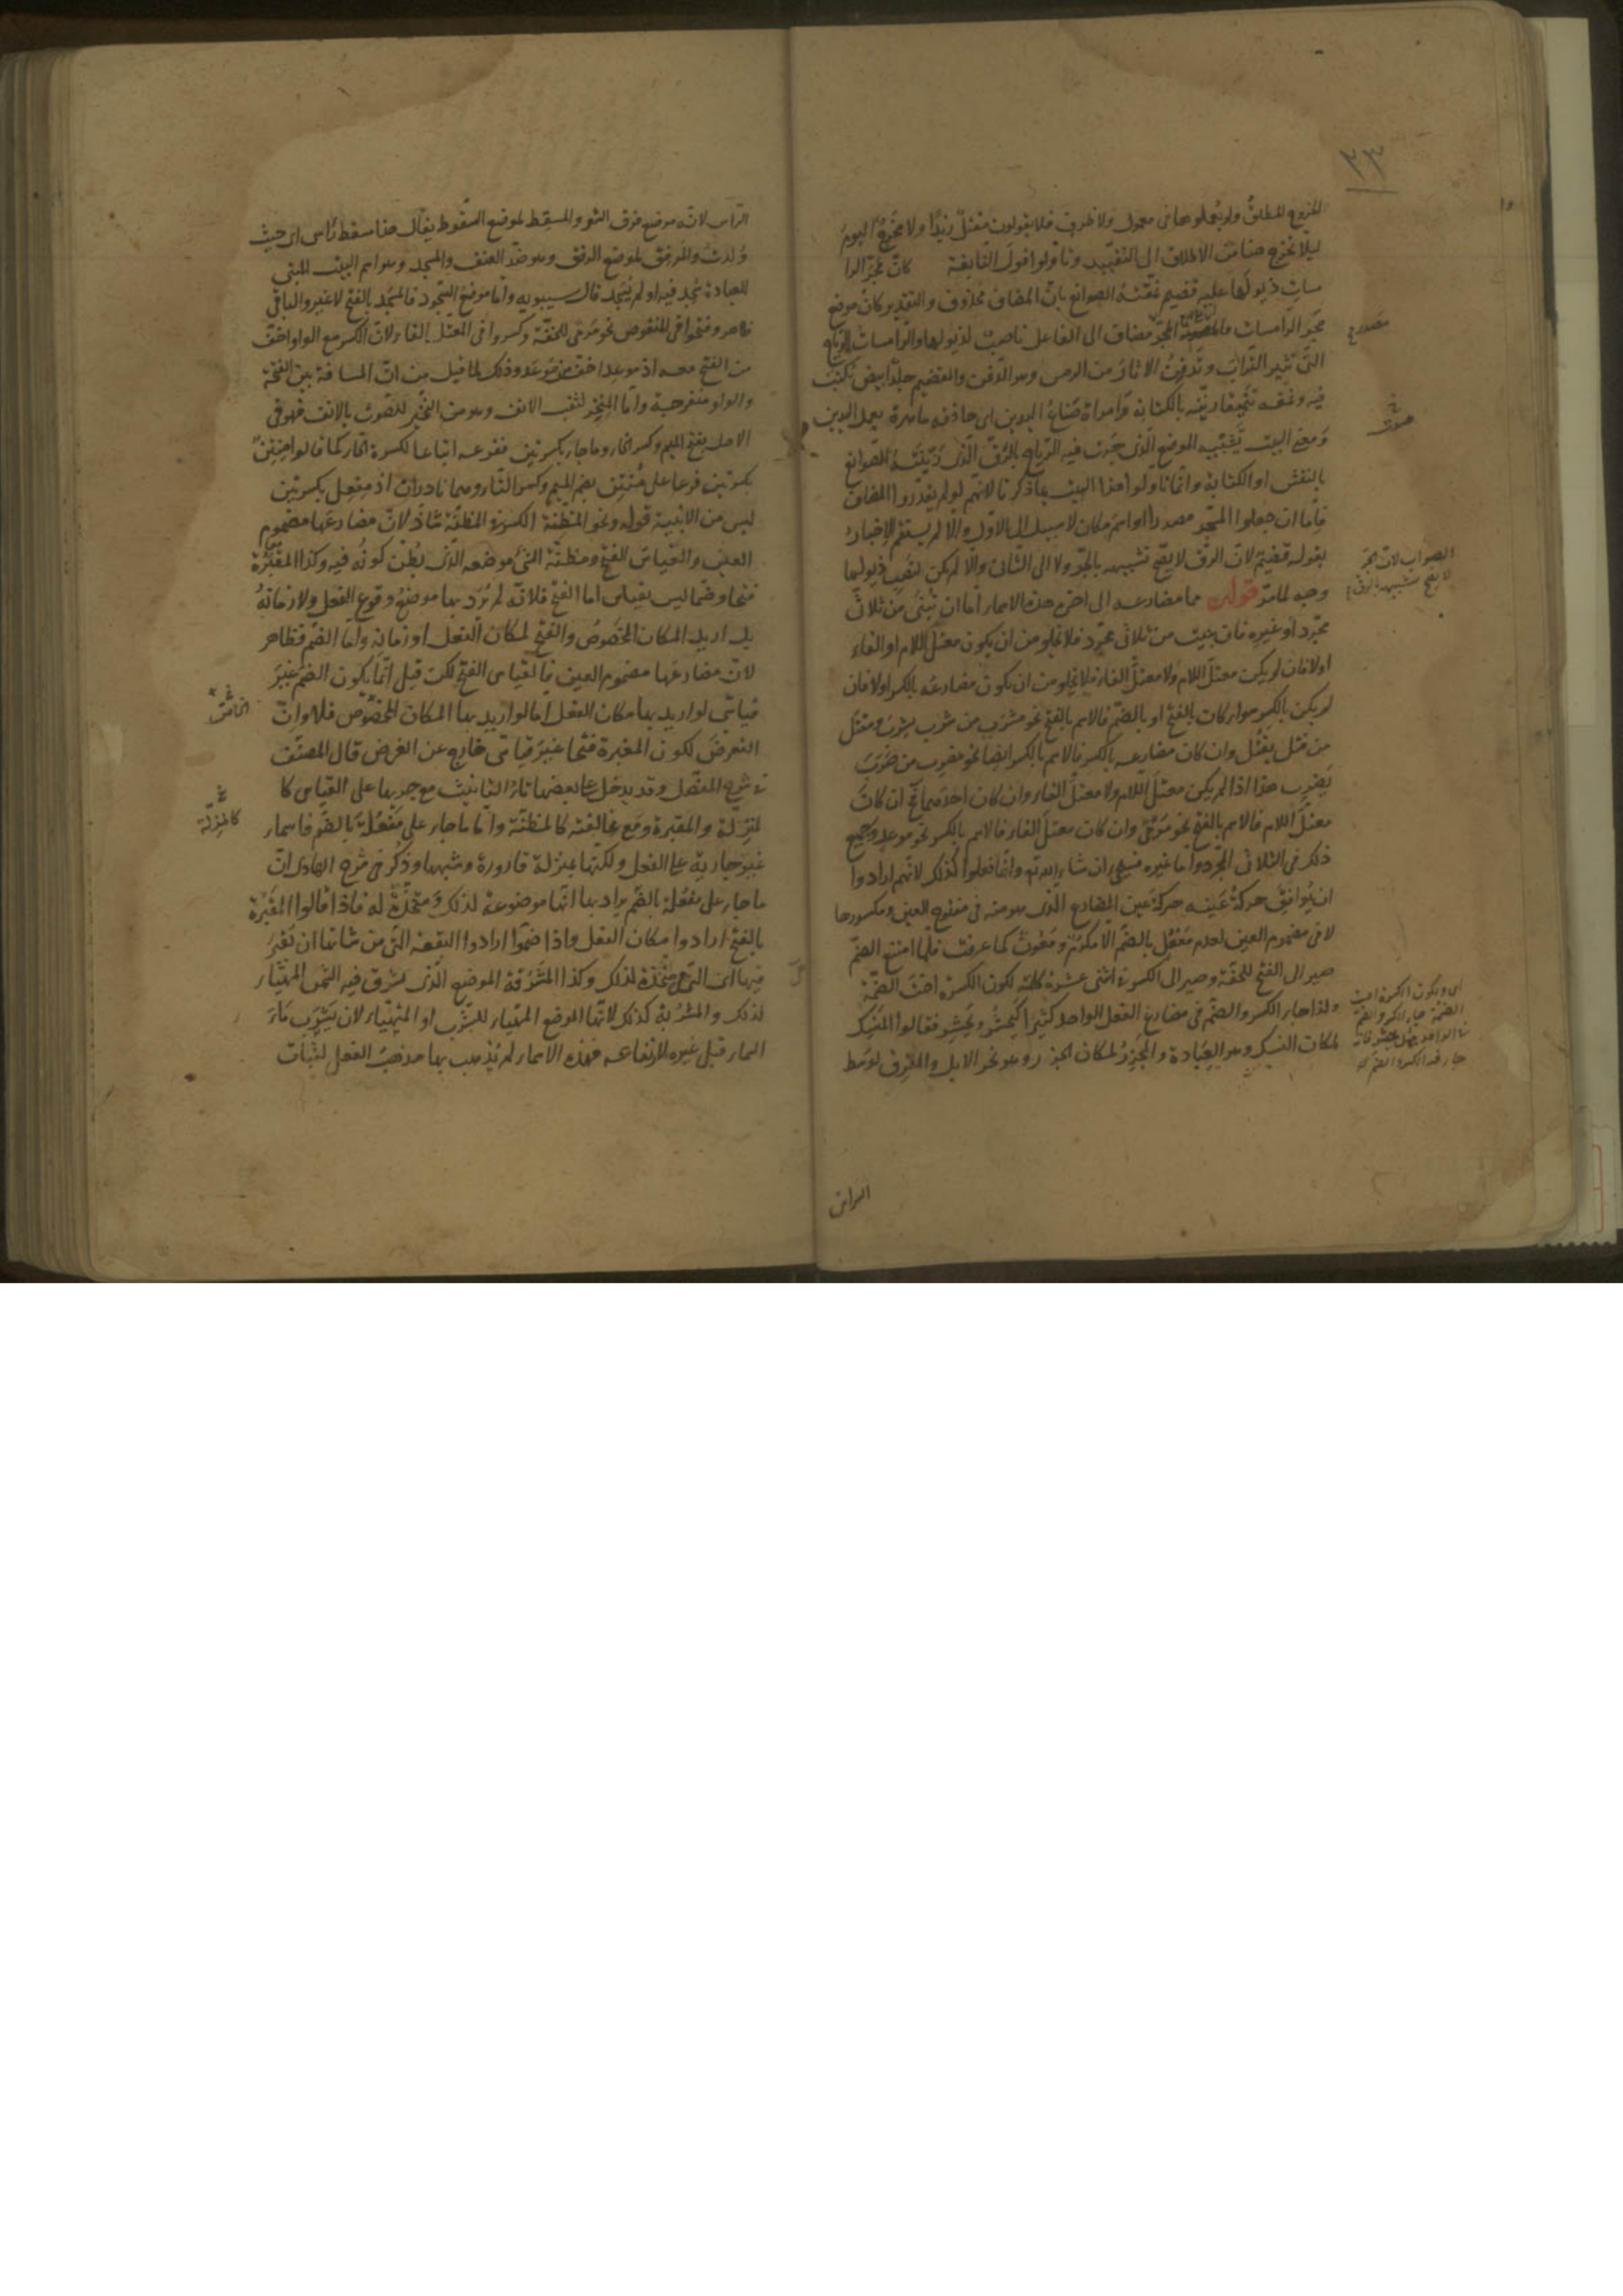 ٣٣
للخروج المطلق ولم يُعملوها فى معمول ولا ظرف فلا يقولون مَقتَلٌ زيدًا ولا مَخرَجٌ اليومَ
ليلا تخرج عنها من الاطلاق الى التقييد وتاولوا قول النابغة كانّ مَجَرّ الرا
مسات ذيولَها عليه قضيم نمّقته الصوانع بانّ المضاف محذوف والتقدير كان موضع
مَجَرّ الرامسات المجرّ مضاف الى الفاعل ناصبٌ لذيولها والرامسات الرياح
التى تثير التراب وتدفِنُ الاثار من الرمس وهو الدفن والقضيم جلدٌ ابيض يُكتَبُ
فيه ونمقه تنميقا زيّنه بالكتابة وامراة صَناعُ اليدين اى حاذقة ماهرة بعمل اليدين
ومعنى البيت تشبيه الموضع الذى جَرَت فيه الرياح بالرَقّ الذى زيّنَتْه الصوانع
بالنقش او الكتابة وانما تاولوا هذا البيت بما ذكرنا لانهم لو لم يقدّروا المضاف
فامّا ان جعلوا المجَرّ مصدرا او اسمَ مكان لا سبيل الى الاوّل والا لم يستقم الاخبارُ
بقوله قضيم لانّ الرق لا يصحّ تشبيهه بالجرّ ولا الى الثانى والا لم يكن لنصب ذيولها
وجه لما مرّ قوله مما مضارعه الى اخره هذه الاسماء اما ان تُبنَى من ثلاثى
مجرّد او غيره فان بنيت من ثلاثى مجرّد فلا يخلو من ان يكون معتلّ اللام او الفاء
اولا فان لم يكن معتلّ اللام ولا معتلّ الفاء فلا يخلو من ان يكون مضارعُه بالكسر اولا فان
لم يكن بالكسر سواء كان بالفتح او بالضمّ فالاسم بالفتح نحو مَشرَب من شرب يشرَب ومقتَل
من قتل يقتُل وان كان مضارعه بالكسر فالاسم بالكسر ايضا نحو مضرِب من ضرَبَ
يضرِب هذا اذا لم يكن معتلّ اللام ولا معتلّ الفاء وان كان احدَهما فان كانَ
معتلّ اللام فالاسم بالفتح نحو مَرمًى وان كان معتلّ الفاء فالاسم بالكسر نحو موعِد وجميع
ذلك فى الثلاثى المجرّد واما غيره فسيجئ ان شاء الله تع وانّما فعلوا كذلك لانهم ارادوا
ان يُوافق حركةُ عَينه حركةَ عين المضارع الذى هو منه فى مفتوح العين ومكسورها
لا فى مضموم العين لعدم مَفعُل بالضم الا مَكرُم ومَعُون كما عرفت فلمّا امتنع الضمّ
صير الى الفتح للخفّة وصير الى الكسر فى اثنى عشرة كلمة لكون الكسرة اختَ الضمّة
ولذا جاء الكسر والضمّ فى مضارع الفعل الواحد كثيرا كيَحشُر ويَحشِر فقالوا المَنسِك
لمكان النسك وهو العبادة والمجزِر لمكان الجزر وهو نحر الابل والمفرِق لوسط
مصدر
الصواب لانّ المجرّ
لا يصح تشبيهه بالرق
اى ولكون الكسرة اخت
الضمة جاء الكسر والضم
جاء فيه الكسر والضم
الراس
الراس لانّه موضع فرق الشعر والمسقِط لموضع السقوط يقال هذا مسقط راس اى حيث
وُلدتُ والمَرفِق لموضع الرفق وهو ضدّ العنف والمسجد وهو اسم البيت المبنى
للعبادة سُجد فيه او لم يُسجَد قال سيبويه واما موضع السجود فالمسجَد بالفتح لا غير والباقى
ظاهر وفتحوا فى المنقوص نحو مَرمًى للخفّة وكسروا فى المعتل الفاء لانّ الكسر مع الواو اخفّ
من الفتح معه اذ موعِد اخفّ من مَوعَد وذلك لما قيل من انّ المسافة بين الفتحة
والواو منفرجة وامّا المِنخِر لثقب الانف وهو من النخير للصوت بالانف فهو فى
الاصل بفتح الميم وكسر الخاء وما جاء بكسرتين ففرعه اتباعا لكسرة الخاء كما قالوا مِنتِن
بكسرتين فرعا على مُنتِن بضم الميم وكسر التاء وهما نادران اذ مِفعِل بكسرتين
ليس من الابنية قوله ونحو المَظِنّة الكسر فى المظنّة شاذّ لانّ مضارعها مضموم
العين والقياس الفتح ومظنّة الشئ موضعه الذى يُظنّ كونُه فيه وكذا المقبرة
فتحا وضما ليس بقياس اما الفتح فلانّه لم يُرَد بها موضعُ وقوع الفعل ولا زمانُهُ
بل اريد المكان المخصوصُ والفتح لمكان الفعل او زمانه واما الضمّ فظاهر
لانّ مضارعها مضموم العين فالقياس الفتح لكن قيل انّما يكون الضم غيرَ
قياسىّ لو اريد بها مكان الفعل اما لو اريد بها المكان المخصوص فلا وانّ
التعرضَ لكون المقبرة فتحا غيرَ قياسى خارج عن الغرض قال المصنّف
فى شرح المفصّل وقد يدخل على بعضها تاءُ التانيث مع جريها على القياس كا
لمَزِلّة والمقبرة ومع مخالفته كالمظنّة وامّا ما جاء على مَفعُلة بالضم فاسماء
غير جارية على الفعل ولكنها بمنزلة قارورة وشبهها وذُكر فى شرح الهادى انّ
ما جاء على مفعُلة بالضم يراد بها انّها موضوعة لذلك ومتّخذة له فاذا قالوا المقبَرة
بالفتح ارادوا مكان الفعل واذا ضمّوا ارادوا البقعة التى من شانها ان تُقبَرَ
فيها اى التى هى متّخذة لذلك وكذا المَشرُقة الموضع الذى تشرق فيه الشمس المهيّاء
لذلك والمشرُبة كذلك لانّها الموضع المهيّاء للشرب او المتهيّاء لان يَشرَب ماءَ
السماء قبل غيره لارتفاعه فهذه الاسماء لم يُذهب بها مذهبَ الفعل لثبات
كالمَزِلّة